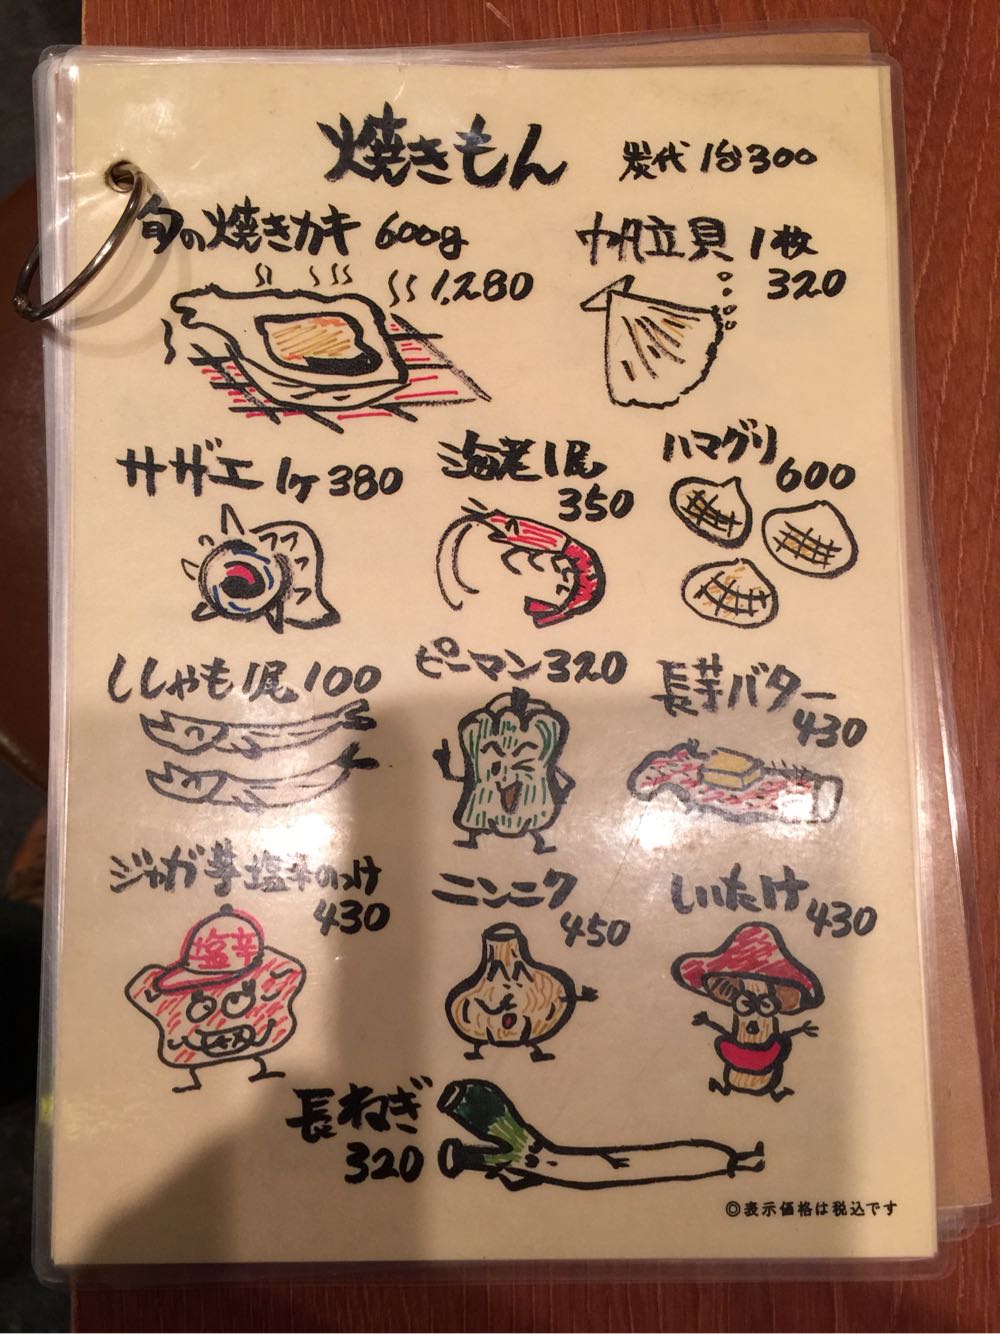 焼きもん
炭代 1台300
旬の焼きカキ 600g
1,280
帆立貝 1枚
320
サザエ 1ヶ 380
海老1尾
350
ハマグリ
600
ししゃも1尾100
ピーマン320
長芋バター
430
ジャガ芋塩辛のっけ
430
塩辛
ニンニク
450
しいたけ
430
長ねぎ
320
◎表示価格は税込です